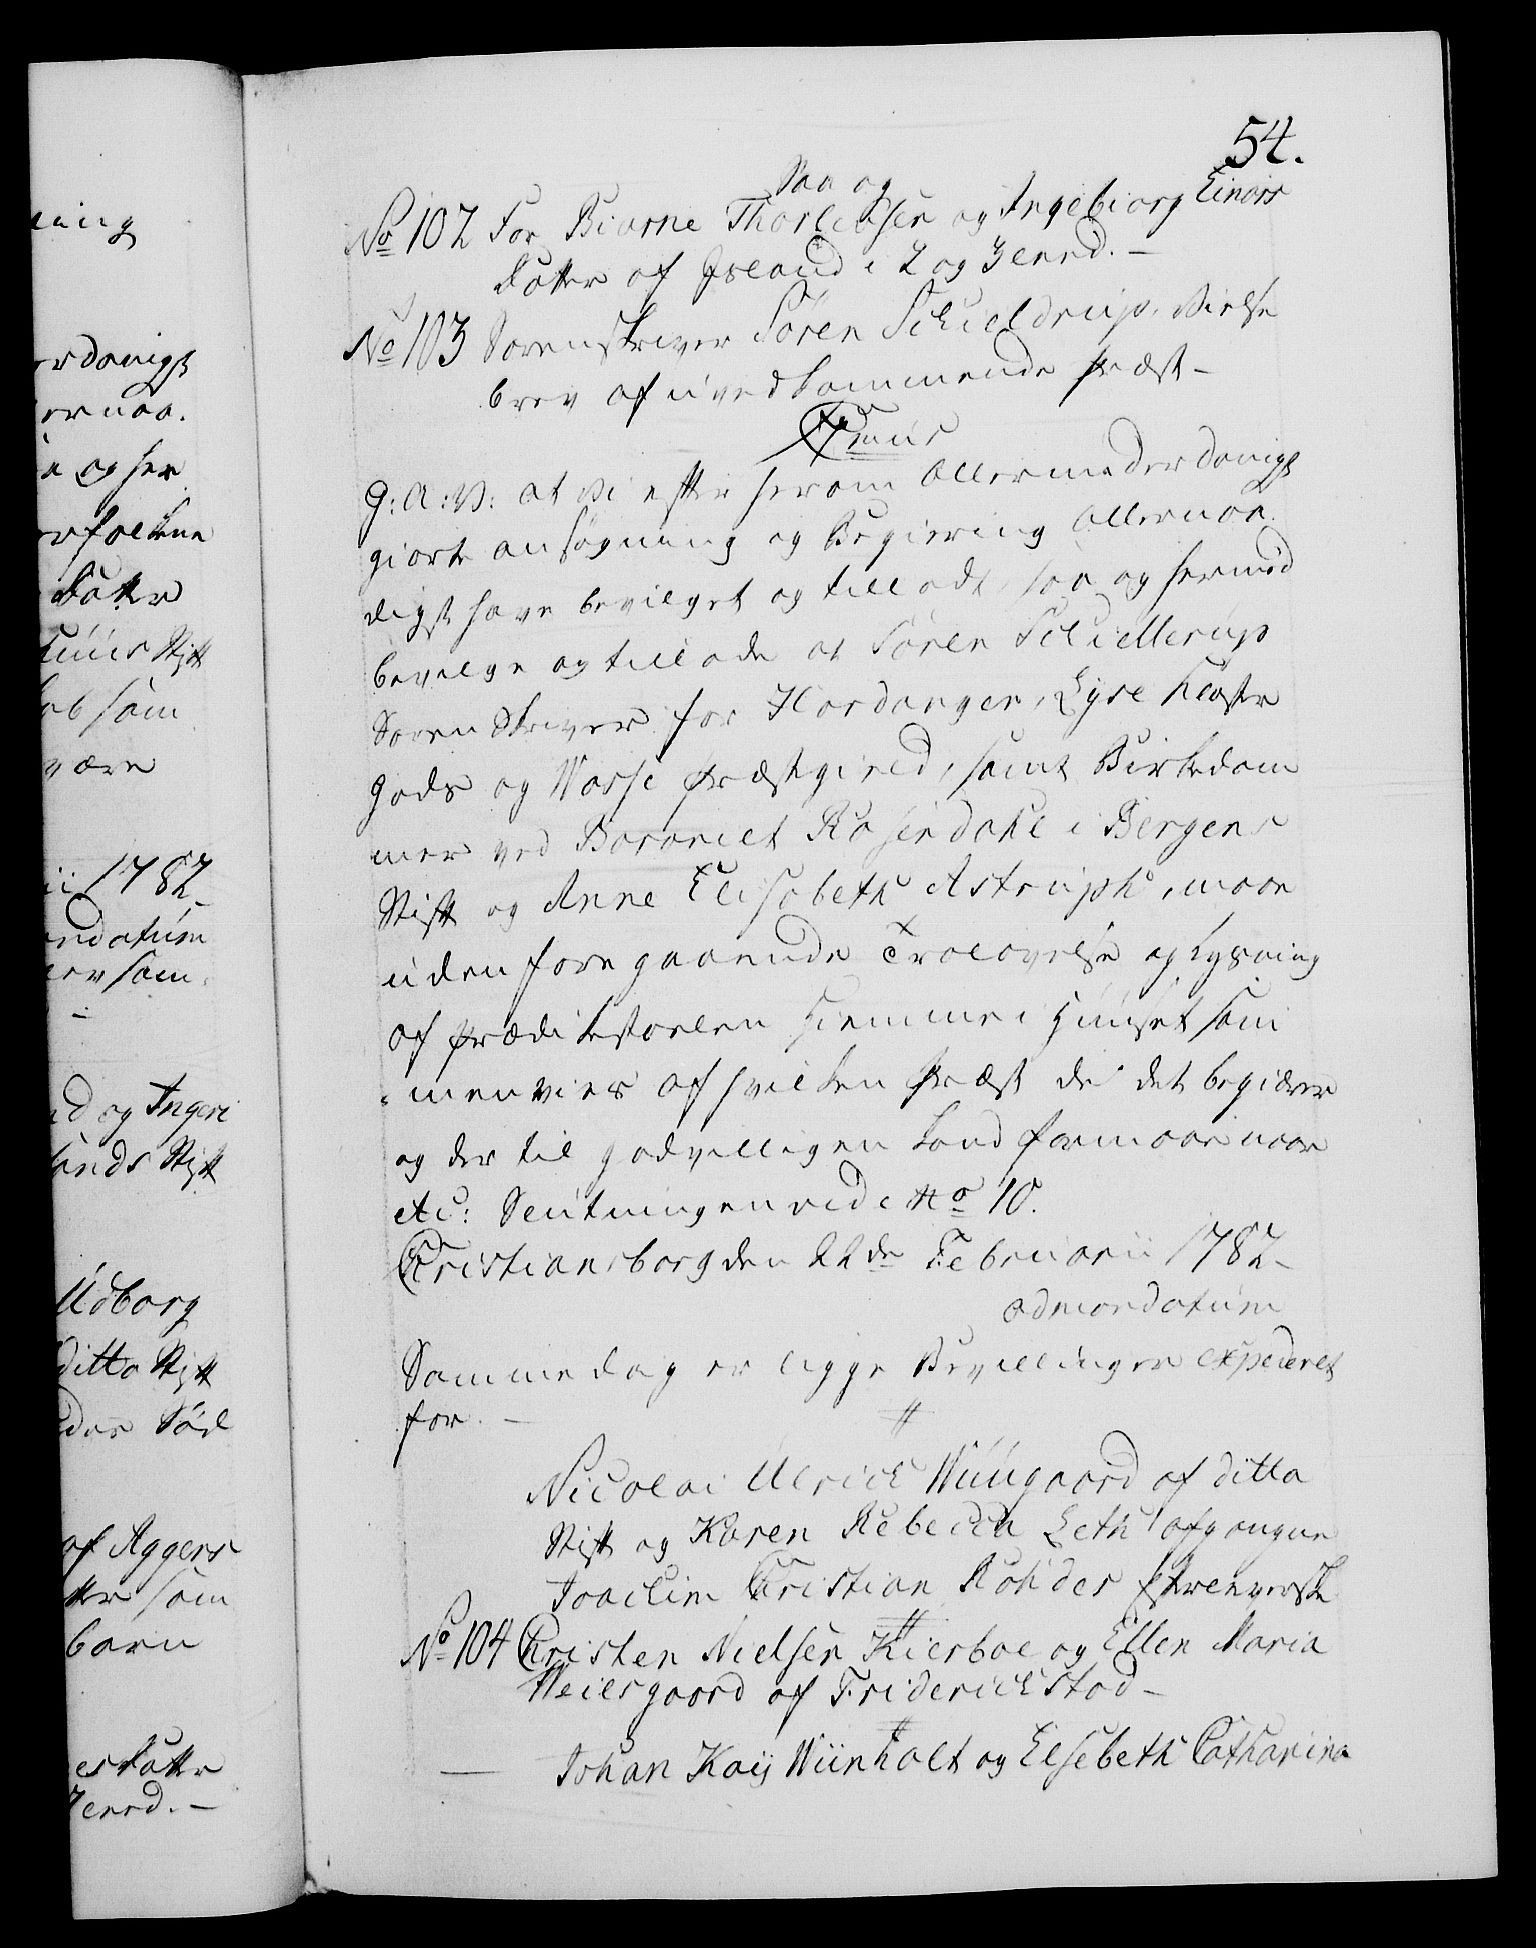 54.
Saa og
No 102 For Biarne Thorleifsen og Ingebiorg Einars
Datter af Island i 2 og 3 leed. -
No 103 Sorenskriver Søren Schieldrup, Vielse
brev af uvedkommende Præst -
C 7mus
G: A: V: at Vi efter herom allerunderdanigst
giorte ansøgning og Begiering allernaa
digst have bevilget og tilladt, saa og hermed
bevilge og tillade at Søren Schiellerup
Sorenskriver for Hardanger, Lyse Kloster
Gods og Wosse Præstegield, samt Birkedom
mer ved Baroniet Rosendahl i Bergens
Stift og Anne Elisabeth Astruph, maae
uden foregaaende Trolovelse og Lysning
af Prædikestoelen hiemme i Huuset sam
menvies af hvilken Præst de det begiærer
og der til godvilligen kand formaae naar
etc: Slutningen vide No 10.
Christiansborg den 22de Februarii 1782 -
ad mandatum
Samme dag er ligge Bevillinger expederet
for. -
Nicolai Ulrich Wiingaard af ditto
Stift og Karen Rebecca Leth afgangne
Joachim Christian Rohdes Efterleverske
No 104 Christen Nielsen Kierboe og Ellen Maria
Weilsgaard af Friderichstad -
- Johan Kaij Wiinholt og Elsebeth Catharina
ning
erdanigst
ernaa.
e og her
erfolkene
Datter
huus Stift
ab som
være
ii 1782
andatum
er som
-
nd og Ingeri
sands Stift
Udborg
ditto Stift
des Sød
af Aggers
tter som
barn
esdatter
3 leed. -